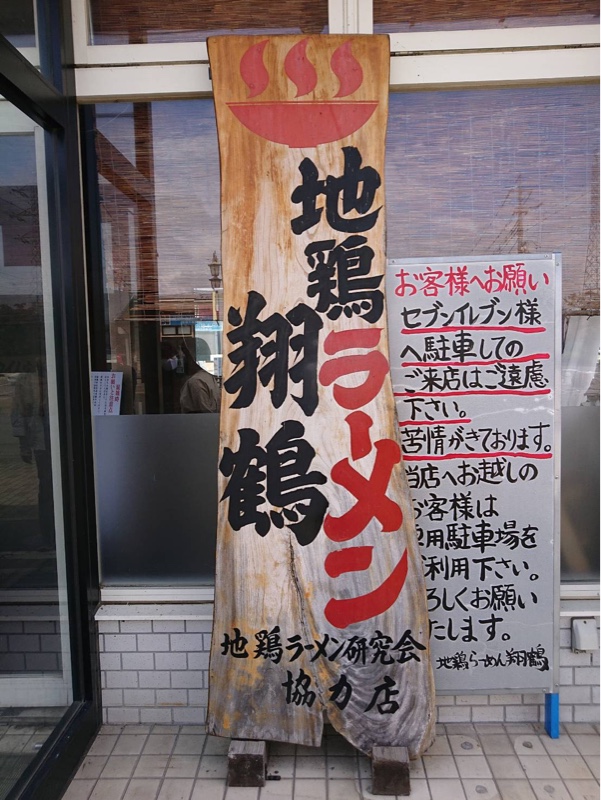 地鶏ラーメン
翔鶴
地鶏ラーメン研究会
協力店
お客様へお願い
セブンイレブン様
へ駐車しての
ご来店はご遠慮
下さい。
苦情がきております。
当店へお越しの
お客様は
用駐車場を
利用下さい。
ろしくお願い
たします。
地鶏らーめん翔鶴